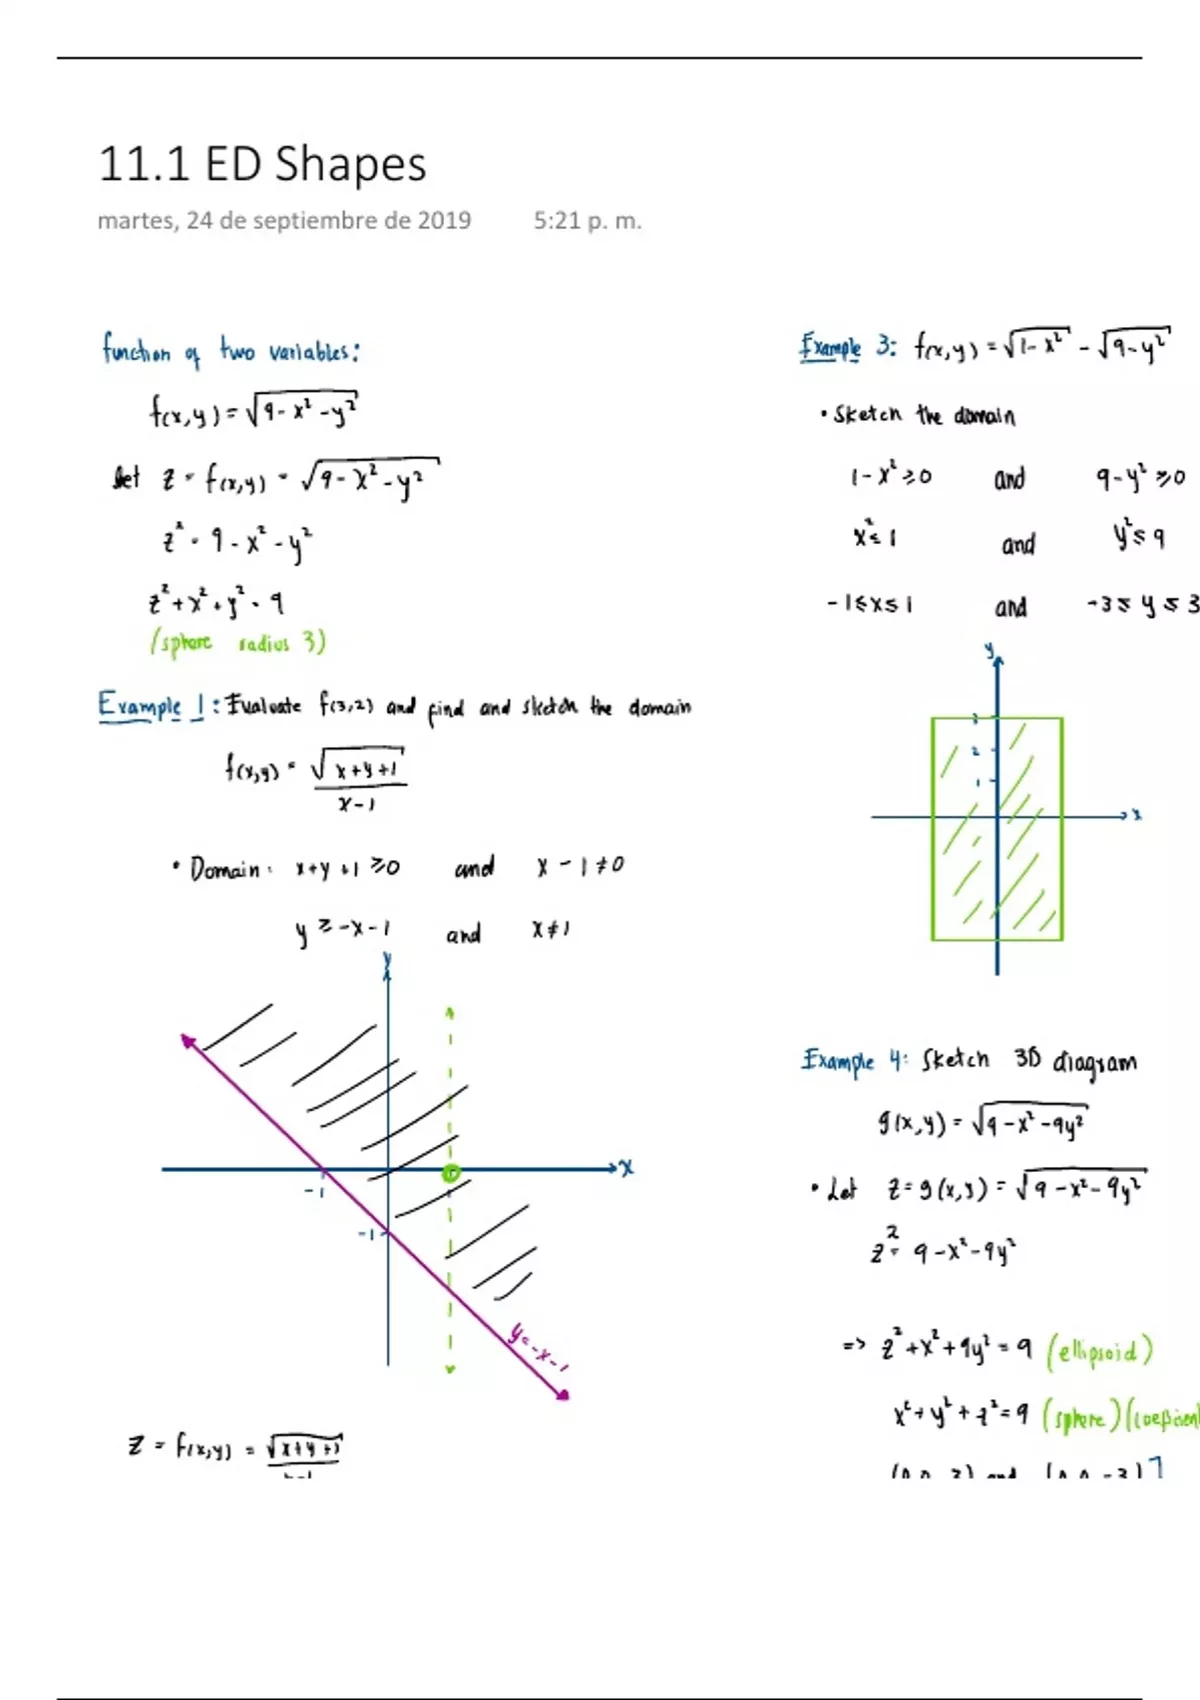 11.1 ED Shapes
martes, 24 de septiembre de 2019 5:21 p. m.
function of two variables:
f(x,y) = √(9-x²-y²)
Let z = f(x,y) = √(9-x²-y²)
z² = 9-x²-y²
z²+x²+y² = 9
(sphere radius 3)
Example 1: Evaluate f(3,2) and find and sketch the domain
f(x,y) = √(x+y+1)
x-1
• Domain: x+y+1 ≥0 and x-1≠0
y ≥ -x-1 and x≠1
y
x
-1
-1
y=-x-1
z = f(x,y) = √(x+y+1)
Example 3: f(x,y) = √(1-x²) - √(9-y²)
• Sketch the domain
1-x² ≥0 and 9-y² ≥0
x²≤1 and y²≤9
-1≤x≤1 and -3≤y≤3
y
3
2
1
x
Example 4: Sketch 3D diagram
g(x,y) = √(9-x²-9y²)
• Let z=g(x,y) = √(9-x²-9y²)
z² = 9-x²-9y²
=> z²+x²+9y² = 9 (ellipsoid)
x²+y²+z²=9 (sphere) (coeficient